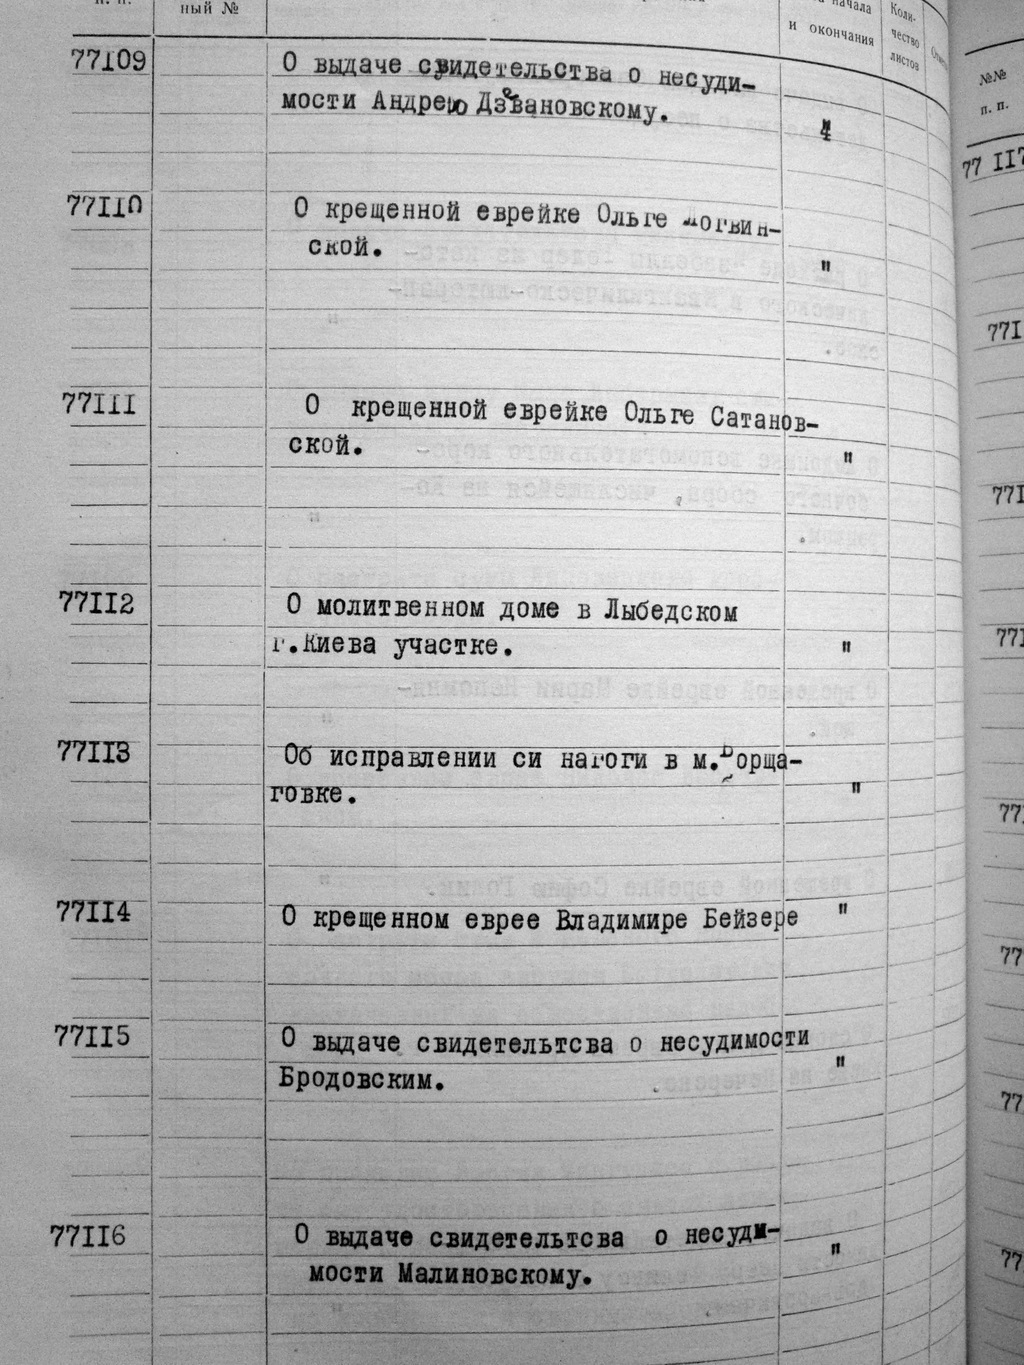 п. п.
ный №
начала
и окончания
Коли-
чество
листов
77109
О выдаче свидетельства о несуди-
мости Андрею Дзвановскому.
4
77110
О крещенной еврейке Ольге Логвин-
ской.
"
77111
О крещенной еврейке Ольге Сатанов-
ской.
"
77112
О молитвенном доме в Лыбедском
г.Киева участке.
"
77113
Об исправлении синагоги в м.Борща-
говке.
"
77114
О крещенном еврее Владимире Бейзере
"
77115
О выдаче свидетельтсва о несудимости
Бродовским.
"
77116
О выдаче свидетельтсва о несуди-
мости Малиновскому.
"
№№
п. п.
77 117
771
771
771
771
77
77
77